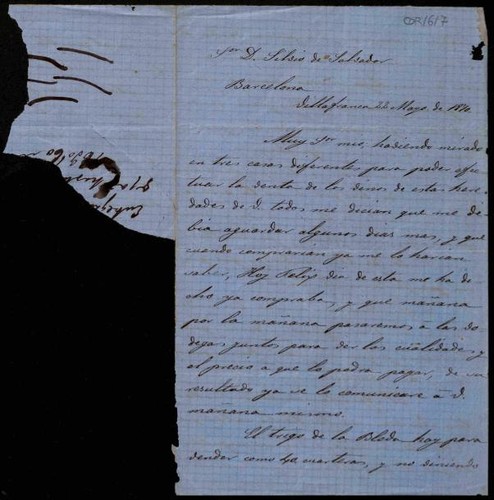 COR/6/7
Sor D. Silvio de Salvador
Barcelona
Villafranca 22 Mayo de 1870.
Muy Sor mio, habiendo mirado
en tres casas diferentes para poder efec
tuar la venta de los vinos de estas here
dades de V. todos me dician que me de
bia aguardar algunos dias mas, y que
cuando comprarian ya me lo harian
saber, Hoy Felix dia de esta me ha di
cho ya compraba, y que mañana
por la mañana pasaremos á las bo
degas juntos para ver las cualidades, y
el precio a que lo podra pagar, de su
resultado ya se lo comunicare á V.
mañana mismo.
El trigo de la Bleda hay para
vender como 40 corteras, y no deviendo